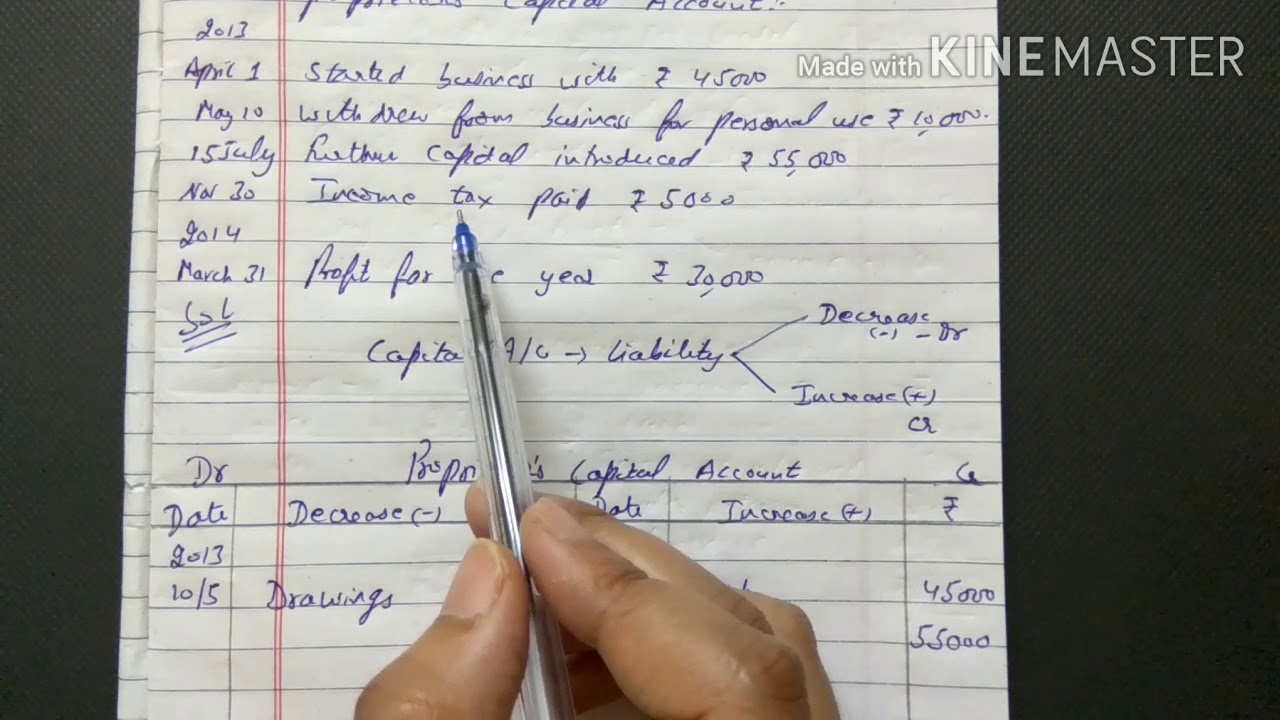 Capital Account:
2013
Made with KINEMASTER
April 1 Started business with ₹ 45000
May 10 withdrew from business for personal use ₹ 10,000.
15 July Further Capital introduced ₹ 55,000
Nov 30 Income tax paid ₹ 5000
2014
March 31 Profit for year ₹ 30,000
Sol
Decrease
(-) - Dr
A/c → Liability
Increase (+)
Cr
Dr Capital Account Cr
Date Decrease (-) Date Increase (+) ₹
2013
10/5 Drawings 45000
55000